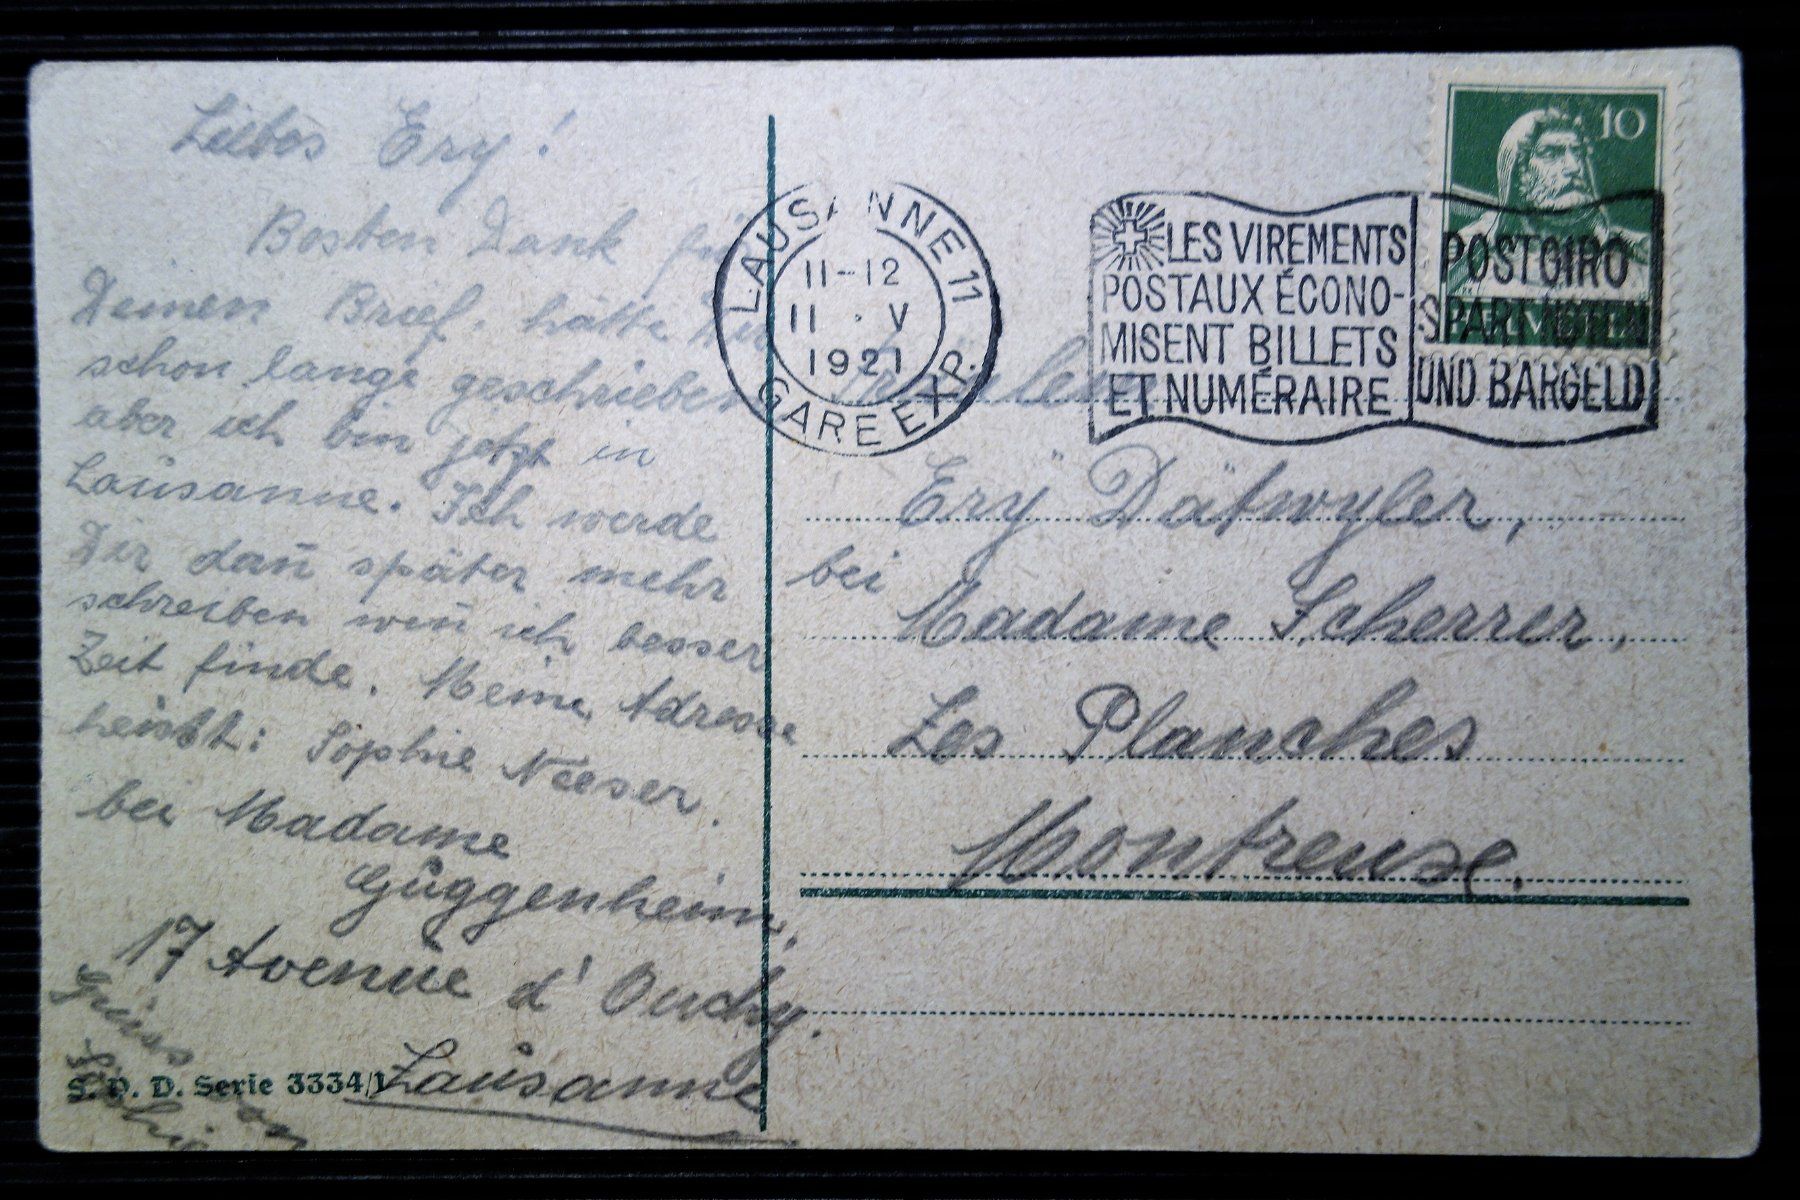 Liebes Ery!
Besten Dank für
Deinen Brief. hätte Dir
schon lange geschrieben
aber ich bin jetzt in
Lausanne. Ich werde
Dir dan̄ später mehr
schreiben wen̄ ich besser
Zeit finde. Meine Adresse
heisst: Sophie Neeser.
bei Madame
Guggenheim,
17 Avenue d'Ouchy.
Lausanne
Gruss von
Sophie
S. P. D. Serie 3334/1
LAUSANNE 11
GARE EXP.
11-12
11 · V
1921
LES VIREMENTS
POSTAUX ÉCONO-
MISENT BILLETS
ET NUMÉRAIRE
POSTGIRO
SPART NOTEN
UND BARGELD
10
Fräulein
Ery Dätwyler,
bei
Madame Scherrer,
Les Planches
Montreux.